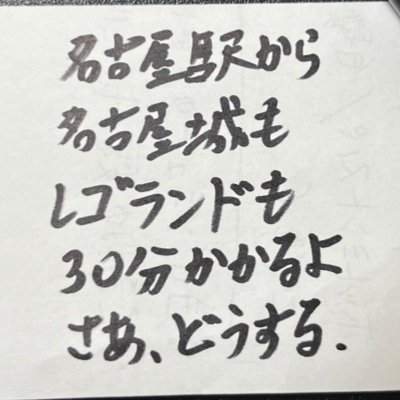 名古屋駅から
名古屋城も
レゴランドも
30分かかるよ
さあ、どうする.